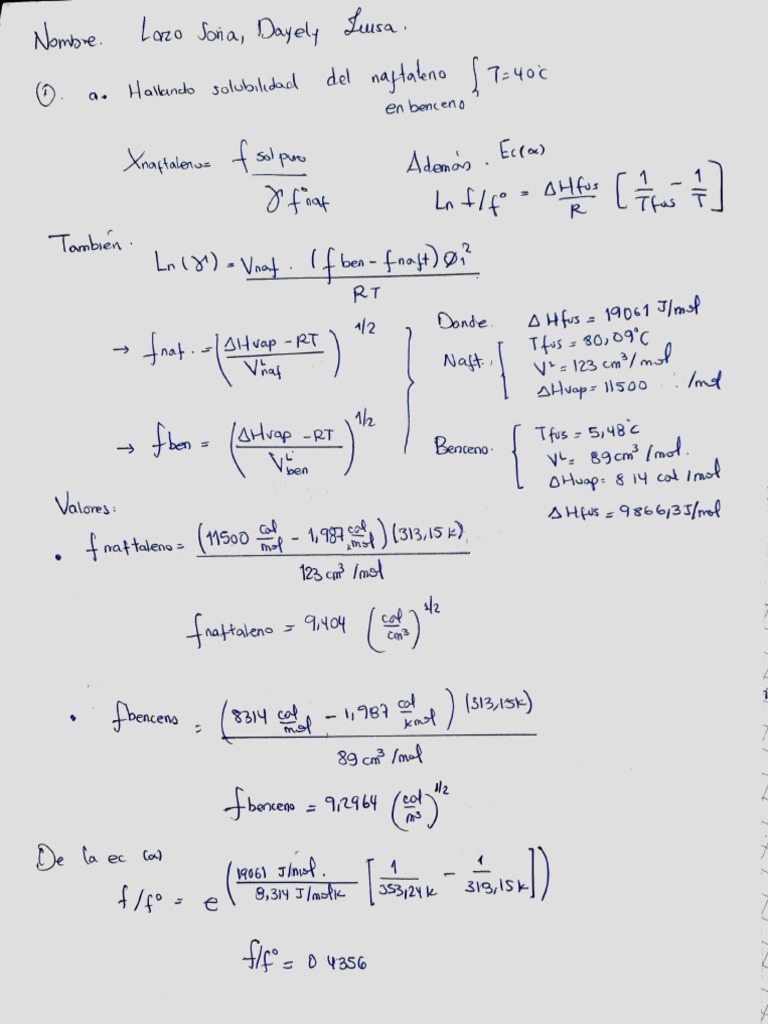 Nombre. Lazo Soria, Dayely Luisa.
①. a. Hallando solubilidad del naftaleno en benceno { T=40°C
Xnaftaleno = f sol puro / γ f°naf
Además. Ec(α)
Ln f/f° = ΔHfus/R [1/Tfus - 1/T]
También.
Ln(γ) = Vnaf. (f ben - f naft) Ø₁² / RT
→ f naf. = (ΔHvap - RT / Vᴸnaf)^1/2
→ f ben = (ΔHvap - RT / Vᴸben)^1/2
Donde. ΔHfus = 19061 J/mol
Naft. [ Tfus = 80,09°C
Vᴸ = 123 cm³/mol
ΔHvap = 11500 /mol
Benceno. { Tfus = 5,48°C
Vᴸ = 89 cm³/mol.
ΔHvap = 8 14 cal/mol
ΔHfus = 9866,3 J/mol
Valores:
• f naftaleno = (11500 cal/mol - 1,987 cal/kmol) (313,15 k) / 123 cm³/mol
f naftaleno = 9,404 (cal/cm³)^1/2
• f benceno = (8314 cal/mol - 1,987 cal/kmol) (313,15k) / 89 cm³/mol
f benceno = 9,2964 (cal/m³)^1/2
De la ec (α)
f/f° = e^(19061 J/mol. / 8,314 J/molk [1/353,24 k - 1/313,15 k])
f/f° = 0 4356